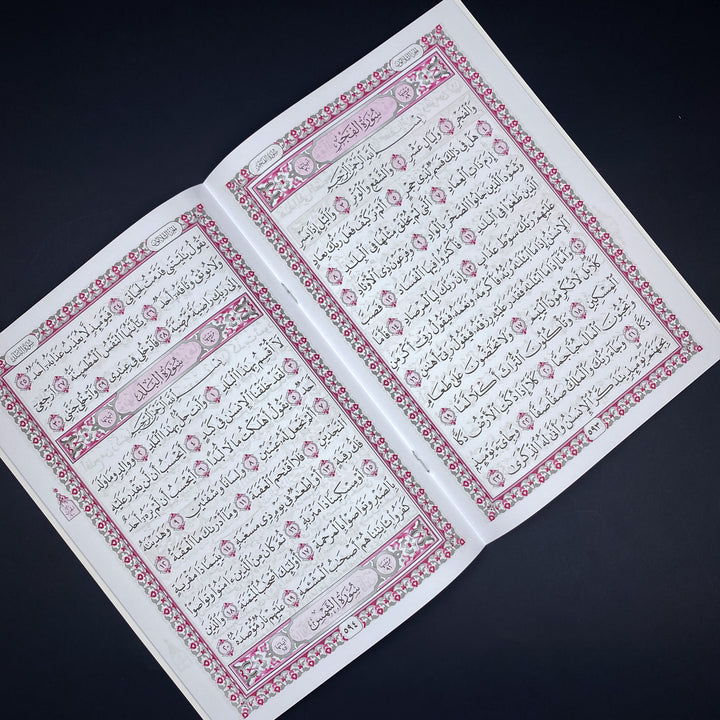 سُورَةُ الفَجْرِ
بِسْمِ اللَّهِ الرَّحْمَٰنِ الرَّحِيمِ
وَالْفَجْرِ ١ وَلَيَالٍ عَشْرٍ ٢ وَالشَّفْعِ وَالْوَتْرِ ٣ وَاللَّيْلِ إِذَا يَسْرِ ٤
هَلْ فِي ذَٰلِكَ قَسَمٌ لِّذِي حِجْرٍ ٥ أَلَمْ تَرَ كَيْفَ فَعَلَ رَبُّكَ بِعَادٍ ٦
إِرَمَ ذَاتِ الْعِمَادِ ٧ الَّتِي لَمْ يُخْلَقْ مِثْلُهَا فِي الْبِلَادِ ٨
وَثَمُودَ الَّذِينَ جَابُوا الصَّخْرَ بِالْوَادِ ٩ وَفِرْعَوْنَ ذِي الْأَوْتَادِ ١٠
الَّذِينَ طَغَوْا فِي الْبِلَادِ ١١ فَأَكْثَرُوا فِيهَا الْفَسَادَ ١٢ فَصَبَّ
عَلَيْهِمْ رَبُّكَ سَوْطَ عَذَابٍ ١٣ إِنَّ رَبَّكَ لَبِالْمِرْصَادِ ١٤ فَأَمَّا
الْإِنسَٰنُ إِذَا مَا ابْتَلَىٰهُ رَبُّهُ فَأَكْرَمَهُ وَنَعَّمَهُ فَيَقُولُ رَبِّي أَكْرَمَنِ
١٥ وَأَمَّا إِذَا مَا ابْتَلَىٰهُ فَقَدَرَ عَلَيْهِ رِزْقَهُ فَيَقُولُ رَبِّي أَهَٰنَنِ ١٦
كَلَّا بَل لَّا تُكْرِمُونَ الْيَتِيمَ ١٧ وَلَا تَحَٰضُّونَ عَلَىٰ طَعَامِ
الْمِسْكِينِ ١٨ وَتَأْكُلُونَ التُّرَاثَ أَكْلًا لَّمًّا ١٩
وَتُحِبُّونَ الْمَالَ حُبًّا جَمًّا ٢٠ كَلَّا إِذَا دُكَّتِ الْأَرْضُ دَكًّا
دَكًّا ٢١ وَجَاءَ رَبُّكَ وَالْمَلَكُ صَفًّا صَفًّا ٢٢ وَجِايءَ يَوْمَئِذٍ
بِجَهَنَّمَ يَوْمَئِذٍ يَتَذَكَّرُ الْإِنسَٰنُ وَأَنَّىٰ لَهُ الذِّكْرَىٰ ٢٣
٥٩٣
يَقُولُ يَٰلَيْتَنِي قَدَّمْتُ لِحَيَاتِي ٢٤ فَيَوْمَئِذٍ لَّا يُعَذِّبُ عَذَابَهُ أَحَدٌ ٢٥
وَلَا يُوثِقُ وَثَاقَهُ أَحَدٌ ٢٦ يَٰأَيَّتُهَا النَّفْسُ الْمُطْمَئِنَّةُ ٢٧ ارْجِعِي
إِلَىٰ رَبِّكِ رَاضِيَةً مَّرْضِيَّةً ٢٨ فَادْخُلِي فِي عِبَٰدِي ٢٩ وَادْخُلِي جَنَّتِي ٣٠
سُورَةُ البَلَدِ
بِسْمِ اللَّهِ الرَّحْمَٰنِ الرَّحِيمِ
لَا أُقْسِمُ بِهَٰذَا الْبَلَدِ ١ وَأَنتَ حِلٌّ بِهَٰذَا الْبَلَدِ ٢ وَوَالِدٍ وَمَا وَلَدَ ٣
لَقَدْ خَلَقْنَا الْإِنسَٰنَ فِي كَبَدٍ ٤ أَيَحْسَبُ أَن لَّن يَقْدِرَ عَلَيْهِ
أَحَدٌ ٥ يَقُولُ أَهْلَكْتُ مَالًا لُّبَدًا ٦ أَيَحْسَبُ أَن لَّمْ يَرَهُ أَحَدٌ ٧
أَلَمْ نَجْعَل لَّهُ عَيْنَيْنِ ٨ وَلِسَانًا وَشَفَتَيْنِ ٩ وَهَدَيْنَٰهُ
النَّجْدَيْنِ ١٠ فَلَا اقْتَحَمَ الْعَقَبَةَ ١١ وَمَا أَدْرَىٰكَ مَا الْعَقَبَةُ ١٢
فَكُّ رَقَبَةٍ ١٣ أَوْ إِطْعَٰمٌ فِي يَوْمٍ ذِي مَسْغَبَةٍ ١٤ يَتِيمًا ذَا مَقْرَبَةٍ
١٥ أَوْ مِسْكِينًا ذَا مَتْرَبَةٍ ١٦ ثُمَّ كَانَ مِنَ الَّذِينَ ءَامَنُوا وَتَوَاصَوْا
بِالصَّبْرِ وَتَوَاصَوْا بِالْمَرْحَمَةِ ١٧ أُولَٰئِكَ أَصْحَٰبُ الْمَيْمَنَةِ ١٨ وَالَّذِينَ
كَفَرُوا بِـَٔايَٰتِنَا هُمْ أَصْحَٰبُ الْمَشْـَٔمَةِ ١٩ عَلَيْهِمْ نَارٌ مُّؤْصَدَةٌ ٢٠
سُورَةُ الشَّمْسِ
٥٩٤